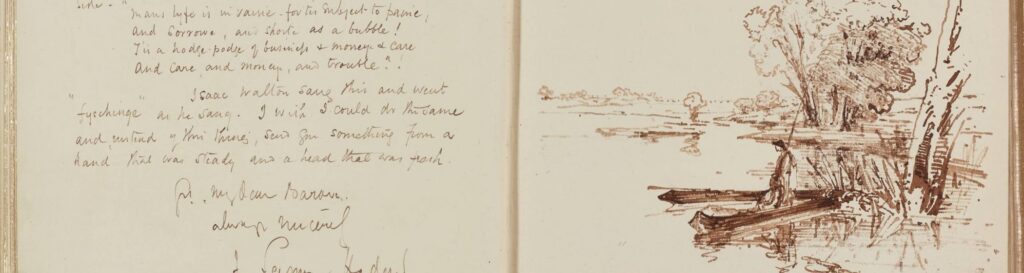 "Mans lyfe is in vaine for tis subject to paine,
and Sorrowe, and shorte as a bubble!
Tis a hodge podge of business & money & care
And care and money, and trouble"!
Isaac Walton sang this and went
"fyschinge" as he sang. I wish I could do the same
and, instead of this thing, send you something from a
hand that was steady and a head that was fresh.
my dear Baron
always sincerely